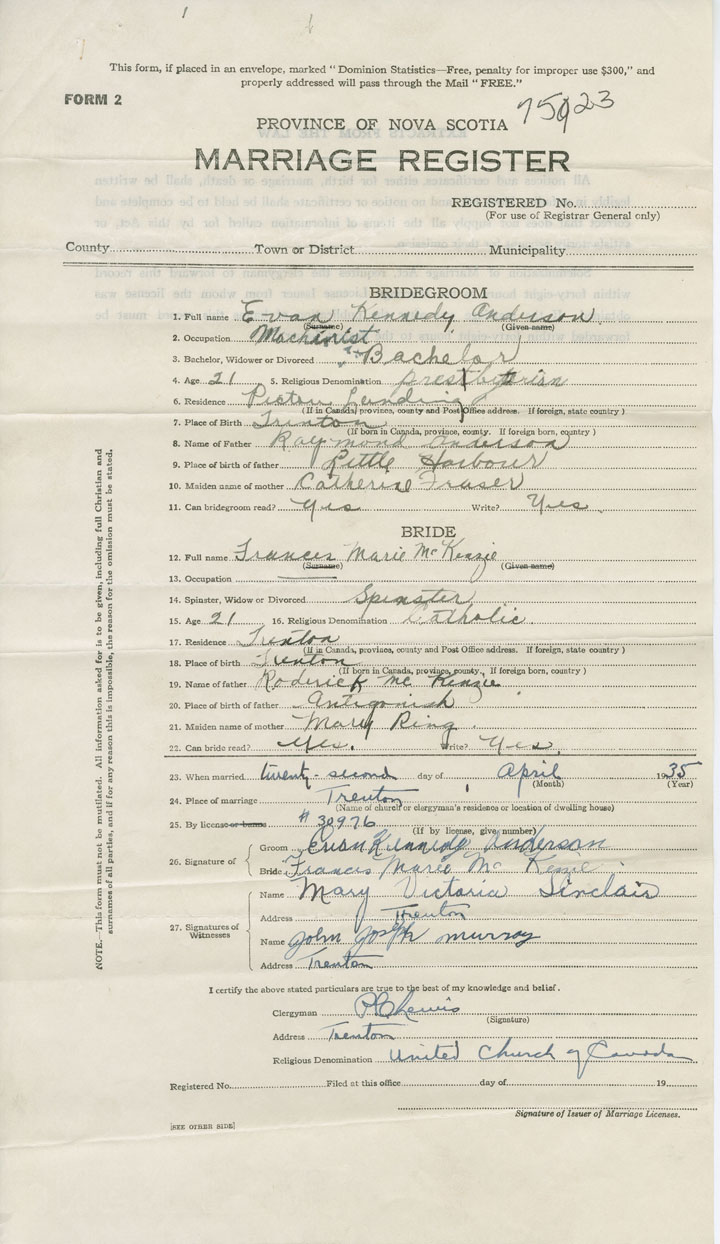 This form, if placed in an envelope, marked "Dominion Statistics—Free, penalty for improper use $300," and
properly addressed will pass through the Mail "FREE."
FORM 2
PROVINCE OF NOVA SCOTIA
MARRIAGE REGISTER
REGISTERED No.
(For use of Registrar General only)
County Town or District Municipality
BRIDEGROOM
1. Full name Evan Kennedy Anderson
(Surname) (Given name)
2. Occupation Machinist
3. Bachelor, Widower or Divorced Bachelor
4. Age 21 5. Religious Denomination Presbyterian
6. Residence Pictou Landing
(If in Canada, province, county and Post Office address. If foreign, state country)
7. Place of Birth Trenton
(If born in Canada, province, county. If foreign born, country)
8. Name of Father Raymond Anderson
9. Place of birth of father Little Harbour
10. Maiden name of mother Catherine Fraser
11. Can bridegroom read? Yes Write? Yes
BRIDE
12. Full name Frances Marie McKenzie
(Surname) (Given name)
13. Occupation
14. Spinster, Widow or Divorced Spinster
15. Age 21 16. Religious Denomination Catholic
17. Residence Trenton
(If in Canada, province, county and Post Office address. If foreign, state country)
18. Place of birth Trenton
(If born in Canada, province, county. If foreign born, country)
19. Name of father Roderick McKenzie
20. Place of birth of father Antigonish
21. Maiden name of mother Mary Ring
22. Can bride read? Yes. Write? Yes.
23. When married twenty-second day of April 1935
(Month) (Year)
24. Place of marriage Trenton
(Name of church or clergyman's residence or location of dwelling house)
25. By license or banns # 30976
(If by license, give number)
26. Signature of
Groom Evan Kennedy Anderson
Bride Frances Marie McKenzie
27. Signatures of Witnesses
Name Mary Victoria Sinclair
Address Trenton
Name John Joseph Murray
Address Trenton
I certify the above stated particulars are true to the best of my knowledge and belief.
Clergyman
(Signature)
Address Trenton
Religious Denomination United Church of Canada
Registered No. Filed at this office day of 19
Signature of Issuer of Marriage Licenses.
[SEE OTHER SIDE]
NOTE.—This form must not be mutilated. All information asked for is to be given, including full Christian and
surnames of all parties, and if for any reason this is impossible, the reason for the omission must be stated.